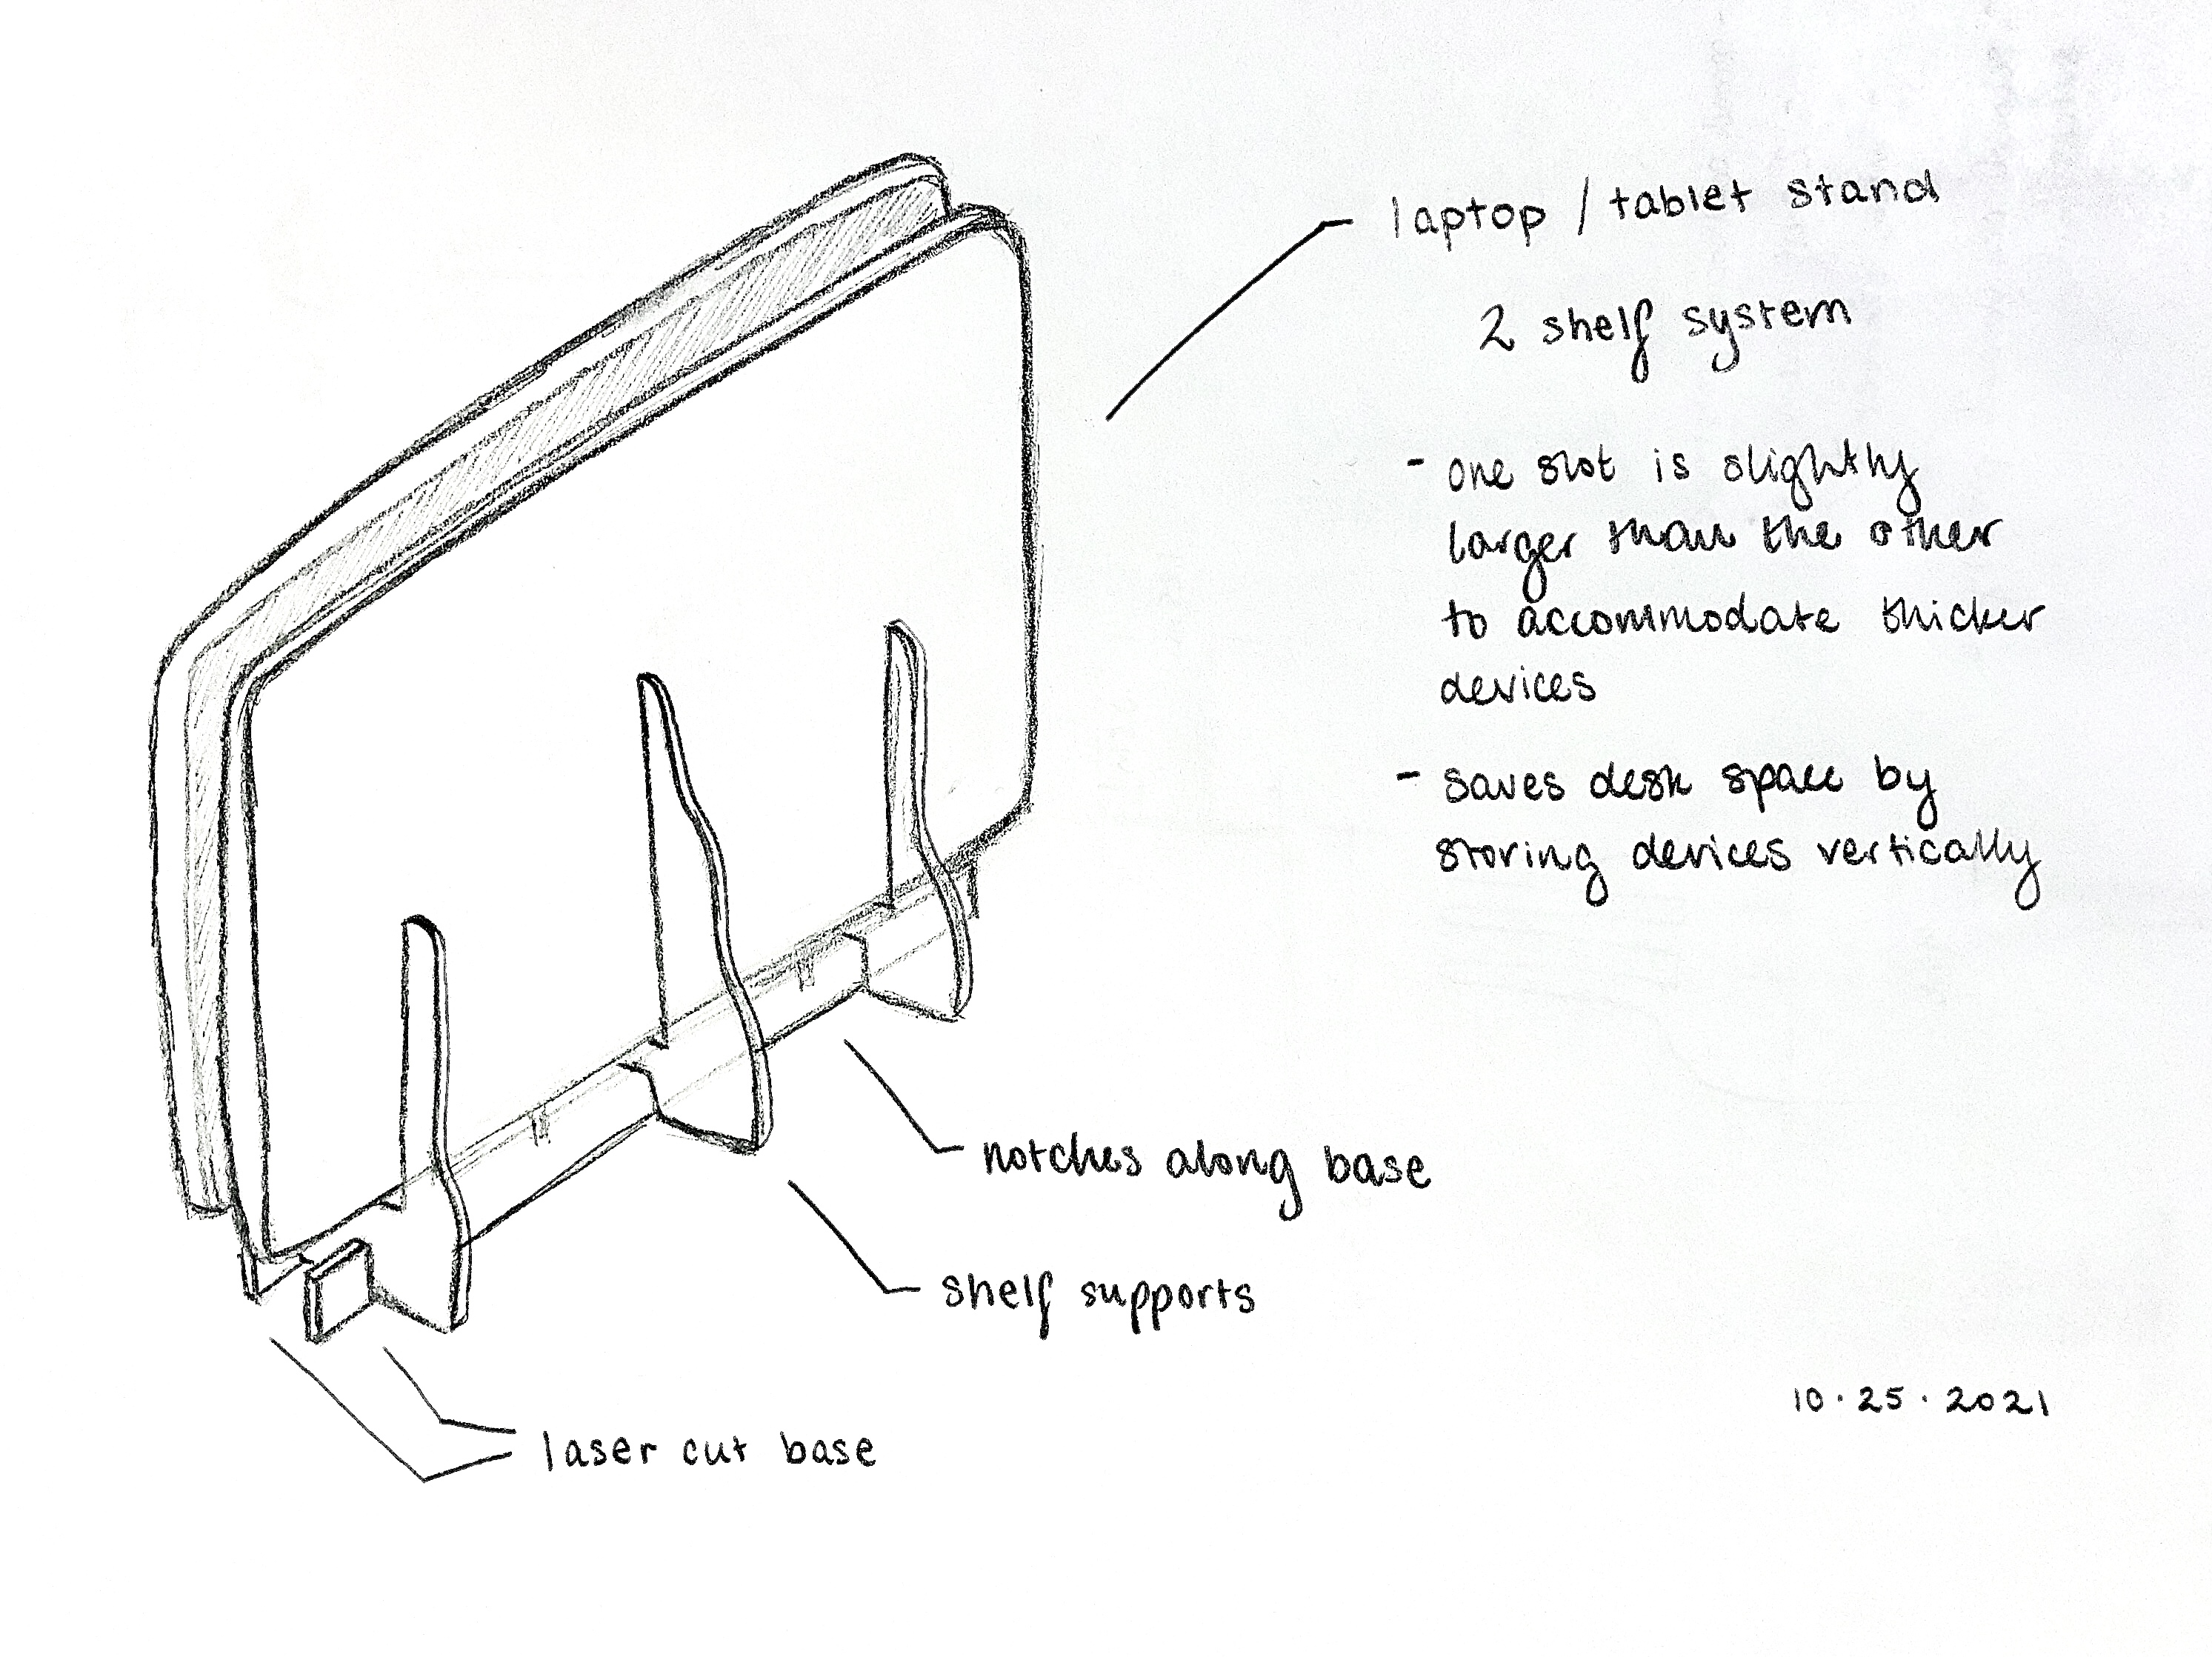 laptop / tablet stand
2 shelf system
- one slot is slightly
larger than the other
to accommodate thicker
devices
- saves desk space by
storing devices vertically
notches along base
shelf supports
laser cut base
10.25.2021